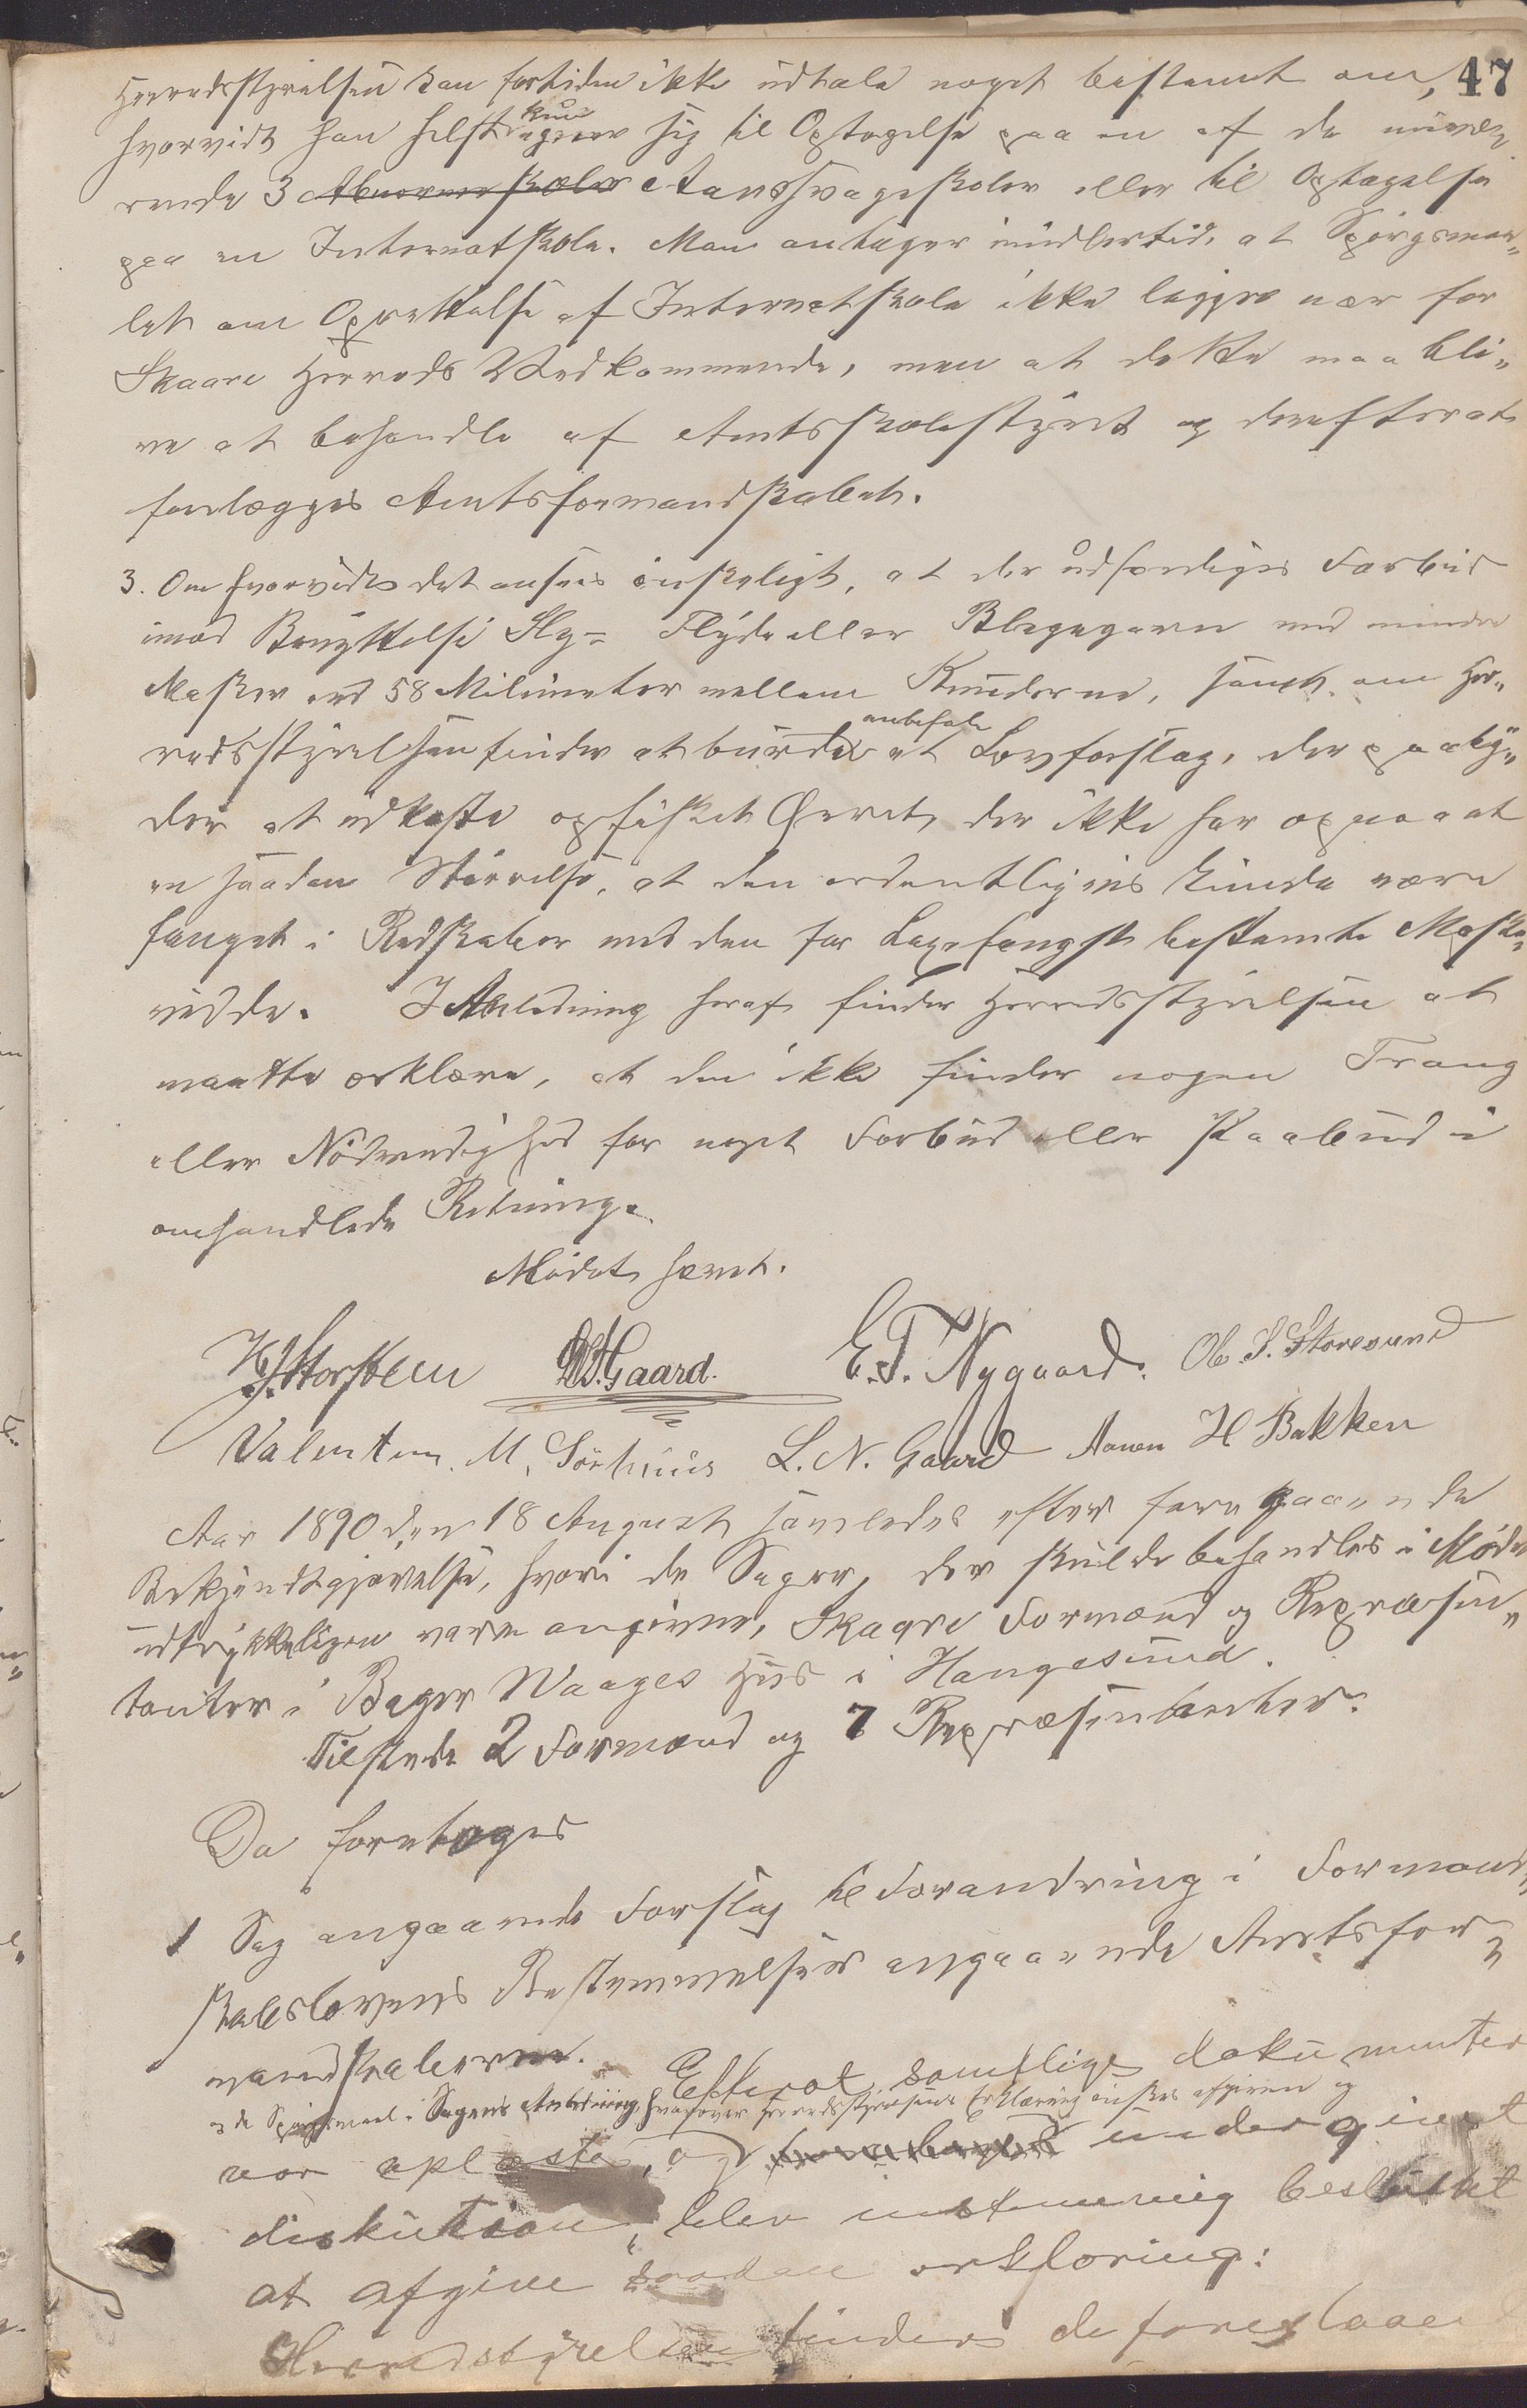 47
Herredsstyrelsen kan fortiden ikke udtale noget bestemt om,
hvorvidt han helst kun egner sig til Optagelse paa en af de nuvæ-
rende 3 Abnormeskoler Aandssvageskoler eller til Optagelse
paa en Internatskole. Man antager imidlertid, at Spørgsmaa„
let om Oprettelse af Internatskole ikke ligger nær for
Skaare Herreds Vedkommende, men at dette maa bli„
ve at behandle af Amtsskolestyret og derefter at
forelægges Amtsformandskabet.
3. Om hvorvidt det ansees ønskeligt, at der udfærdiges Forbud
imod Benyttelse Sly- Flyde eller Blegegarn med mindre
Masker end 58 Milimeter mellem Knuderne, samt om Her„
redsstyrelsen finder at burde anbefale et Lovforslag, der paaby„
der at udkaste opfisket Ørret, der ikke har opnaaet
en saadan Størrelse, at den ordentligvis kunde være
fanget i Redskaber med den for Laxefangst bestemte Maske„
vidde. I Anledning heraf finder Herredsstyrelsen at
maatte erklære, at den ikke finder nogen Trang
eller Nødvendighed for noget Forbud eller Paabud i
omhandlede Retning.
Mødet hævet.
Storsteen Gaard. E. T. Nygaard. Ole S. Storesund
Valentin. M. Sørhuus L. N. Gaard Aanen H Bakken
Aar 1890 den 18 August samledes efter foregaaende
Bekjendtgjørelse, hvori de Sager, der skulde behandles i Mødet
udtrykkeligen vare angivne, Skaare Formænd og Repræsen„
tanter i Bager Waages Hus i Haugesund.
Tilstede 2 Formænd og 7 Repræsentanter.
Da foretoges
1 Sag angaaende Forslag til Forandring i Formand„
skabslovens Bestemmelser angaaende Amtsfor-
mandskaberne. Efterat samtlige dokumenter
de Spørgsmaal i Sagens Anledning, hvorover Herredsstyrelsens Erklæring ønskes afgiven og
var oplæste, og undergivet
diskution, blev enstemmig besluttet
at afgive saadan erklæring:
Herredstyrelsen finder de foreslaaede